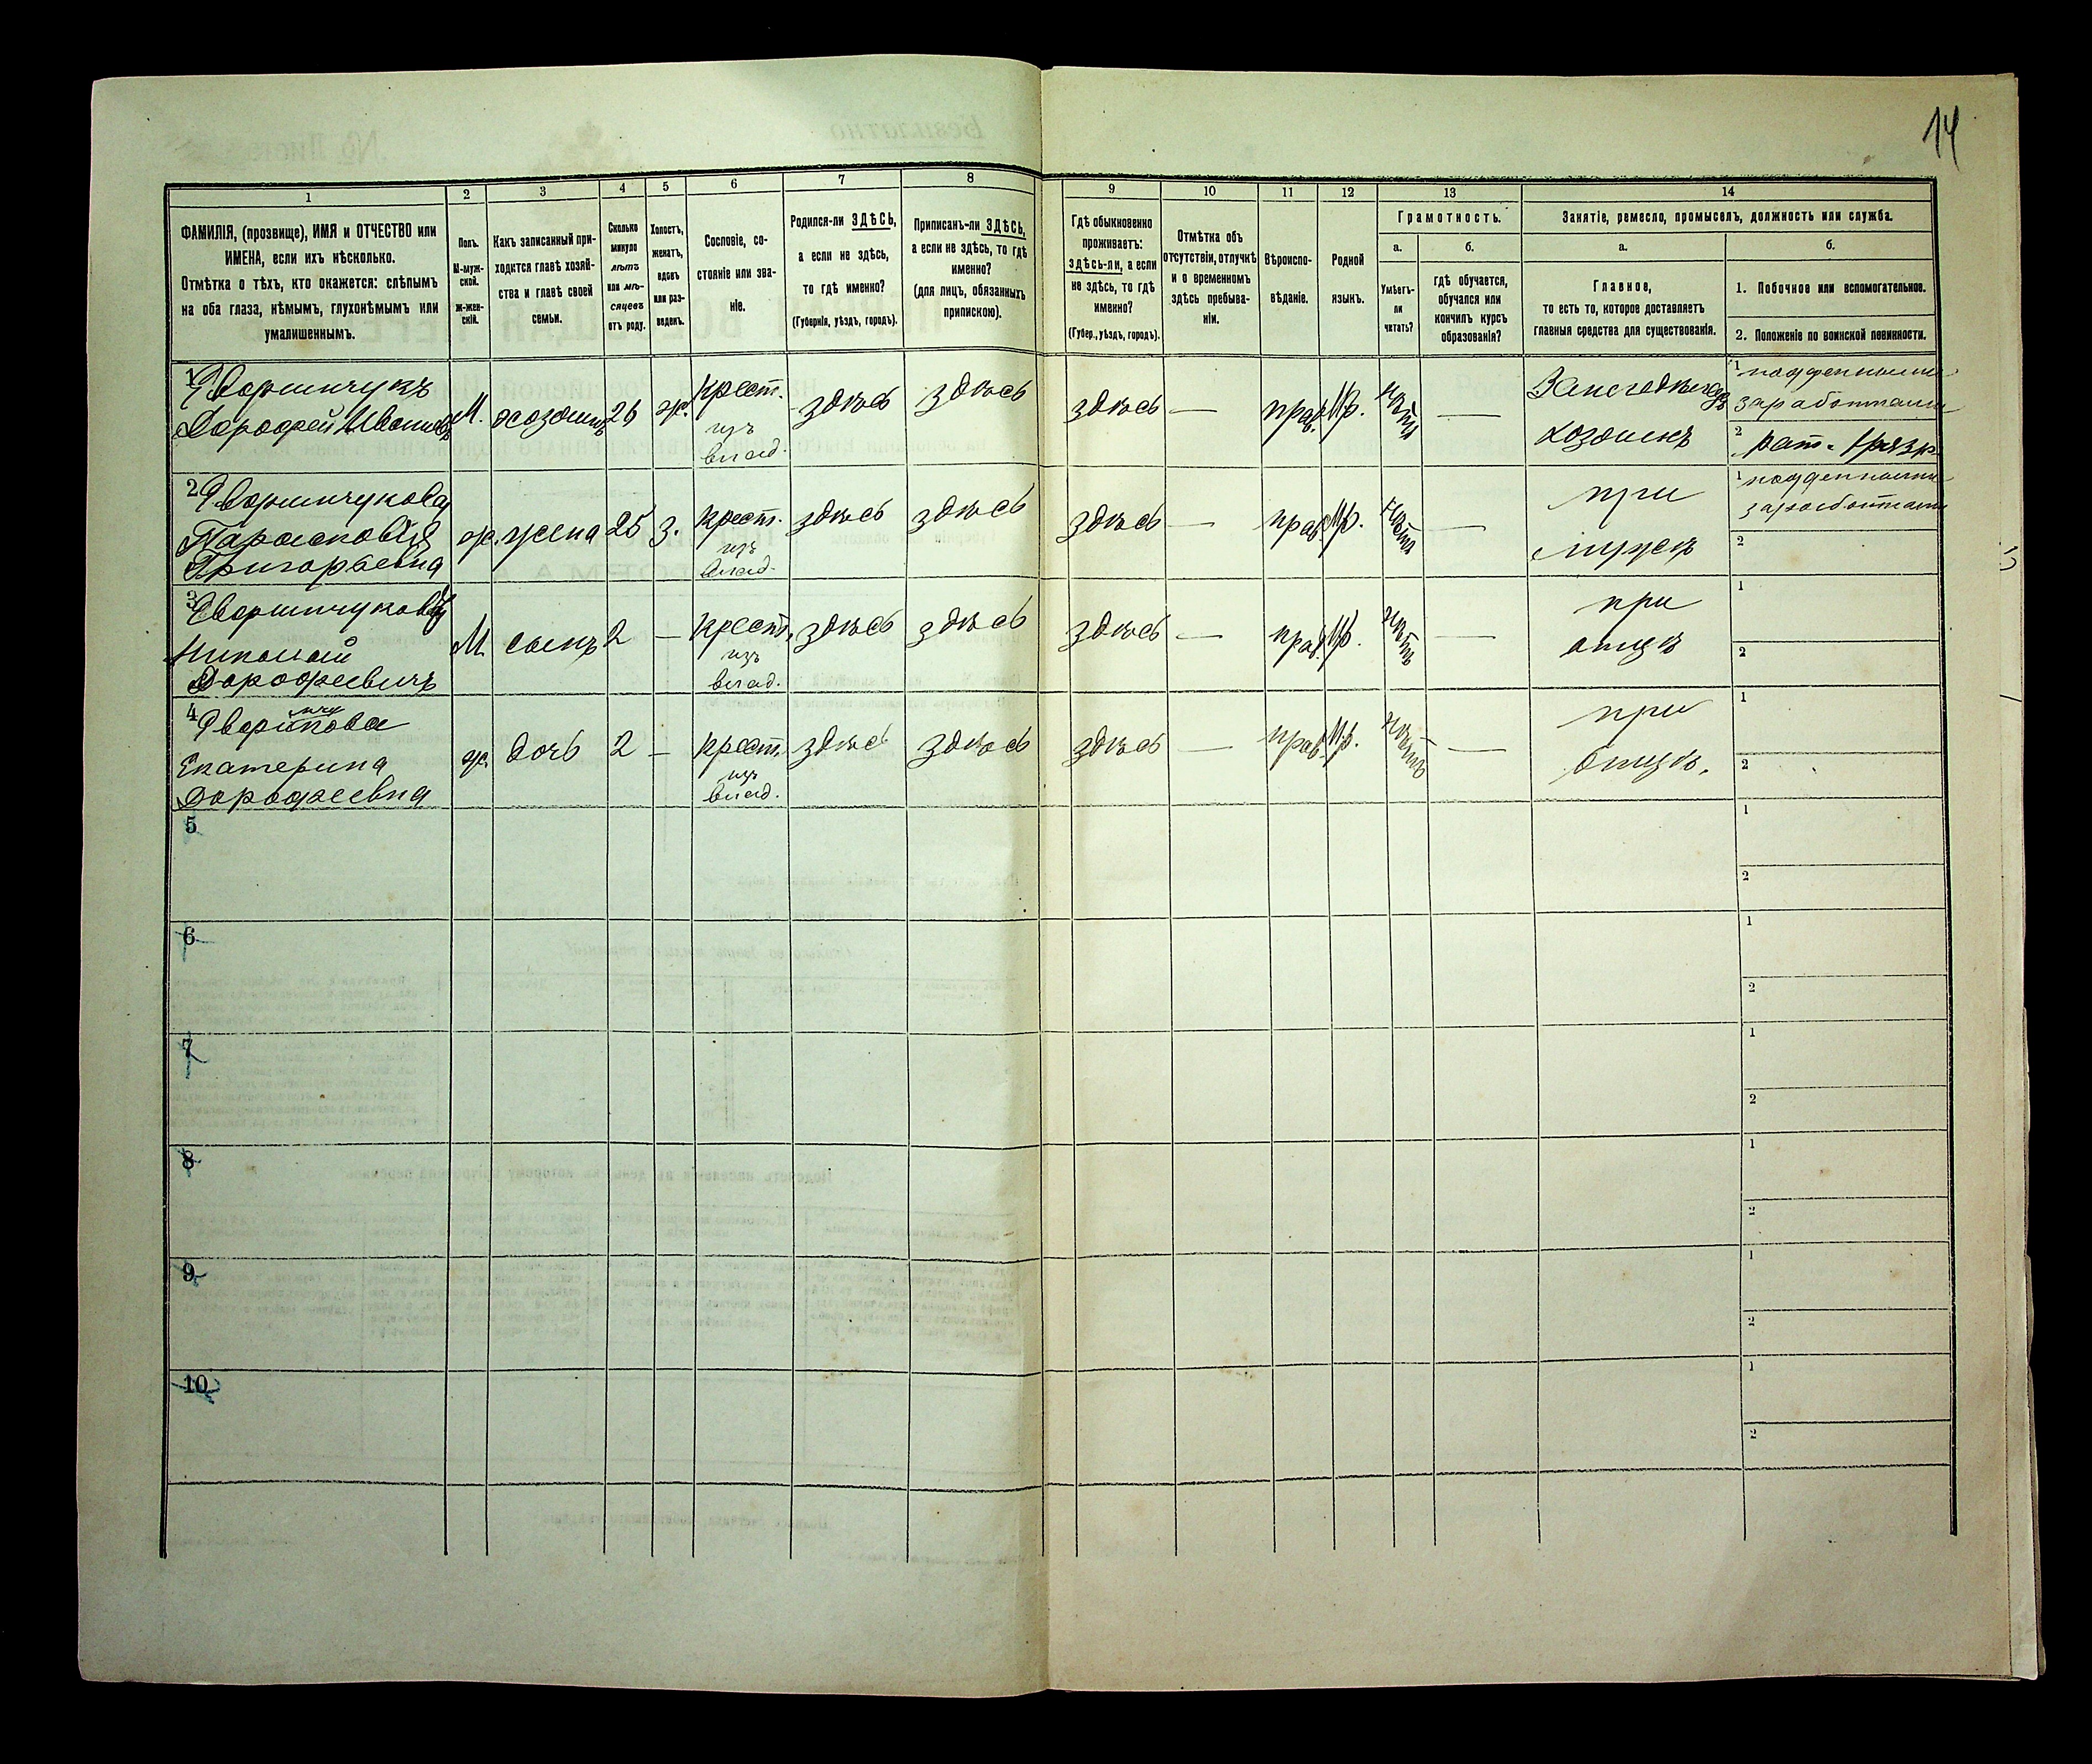 14
1
2
3
4
5
6
7
8
9
10
11
12
13
14
ФАМИЛІЯ, (прозвище), ИМЯ и ОТЧЕСТВО или
ИМЕНА, если ихъ нѣсколько.
Отмѣтка о тѣхъ, кто окажется: слѣпымъ
на оба глаза, нѣмымъ, глухонѣмымъ или
умалишеннымъ.
Полъ.
М-муж-
ской.
Ж-жен-
скій.
Какъ записанный при-
ходится главѣ хозяй-
ства и главѣ своей
семьи.
Сколько
минуло
лѣтъ
или мѣ-
сяцевъ
отъ роду.
Холостъ,
женатъ,
вдовъ
или раз-
веденъ.
Сословіе, со-
стояніе или зва-
ніе.
Родился-ли ЗДѢСЬ,
а если не здѣсь,
то гдѣ именно?
(Губернія, уѣздъ, городъ).
Приписанъ-ли ЗДѢСЬ,
а если не здѣсь, то гдѣ
именно?
(для лицъ, обязанныхъ
припискою).
Гдѣ обыкновенно
проживаетъ:
здѣсь-ли, а если
не здѣсь, то гдѣ
именно?
(Губер., уѣздъ, городъ).
Отмѣтка объ
отсутствіи, отлучкѣ
и о временномъ
здѣсь пребыва-
ніи.
Вѣроиспо-
вѣданіе.
Родной
языкъ.
Грамотность.
а.
Умѣетъ-
ли
читать?
б.
гдѣ обучается,
обучался или
кончилъ курсъ
образованія?
Занятіе, ремесло, промыселъ, должность или служба.
а.
Главное,
то есть то, которое доставляетъ
главныя средства для существованія.
б.
1. Побочное или вспомогательное.
2. Положеніе по воинской повинности.
1
Дорофей Ивановъ
М. хозяинъ 26 ж. крест. изъ влад. здѣсь здѣсь здѣсь — прав. Мр. нѣтъ —
хозяинъ
1 поденными
заработками
2 рат. 1 разр.
2
Парасковія
Григорьевна
ж. жена 25 з. крест. изъ влад. здѣсь здѣсь здѣсь — прав. Мр. нѣтъ —
при
мужѣ
1 поденными
заработками
2
3
Николай
Дорофеевичъ
М. сынъ 2 — крест. изъ влад. здѣсь здѣсь здѣсь — прав. Мр. нѣтъ —
при
отцѣ
1
2
4
Екатерина
Дорофеевна
ж. дочь 2 — крест. изъ влад. здѣсь здѣсь здѣсь — прав. Мр. нѣтъ —
при
отцѣ.
1
2
5
1
2
6
1
2
7
1
2
8
1
2
9
1
2
10
1
2